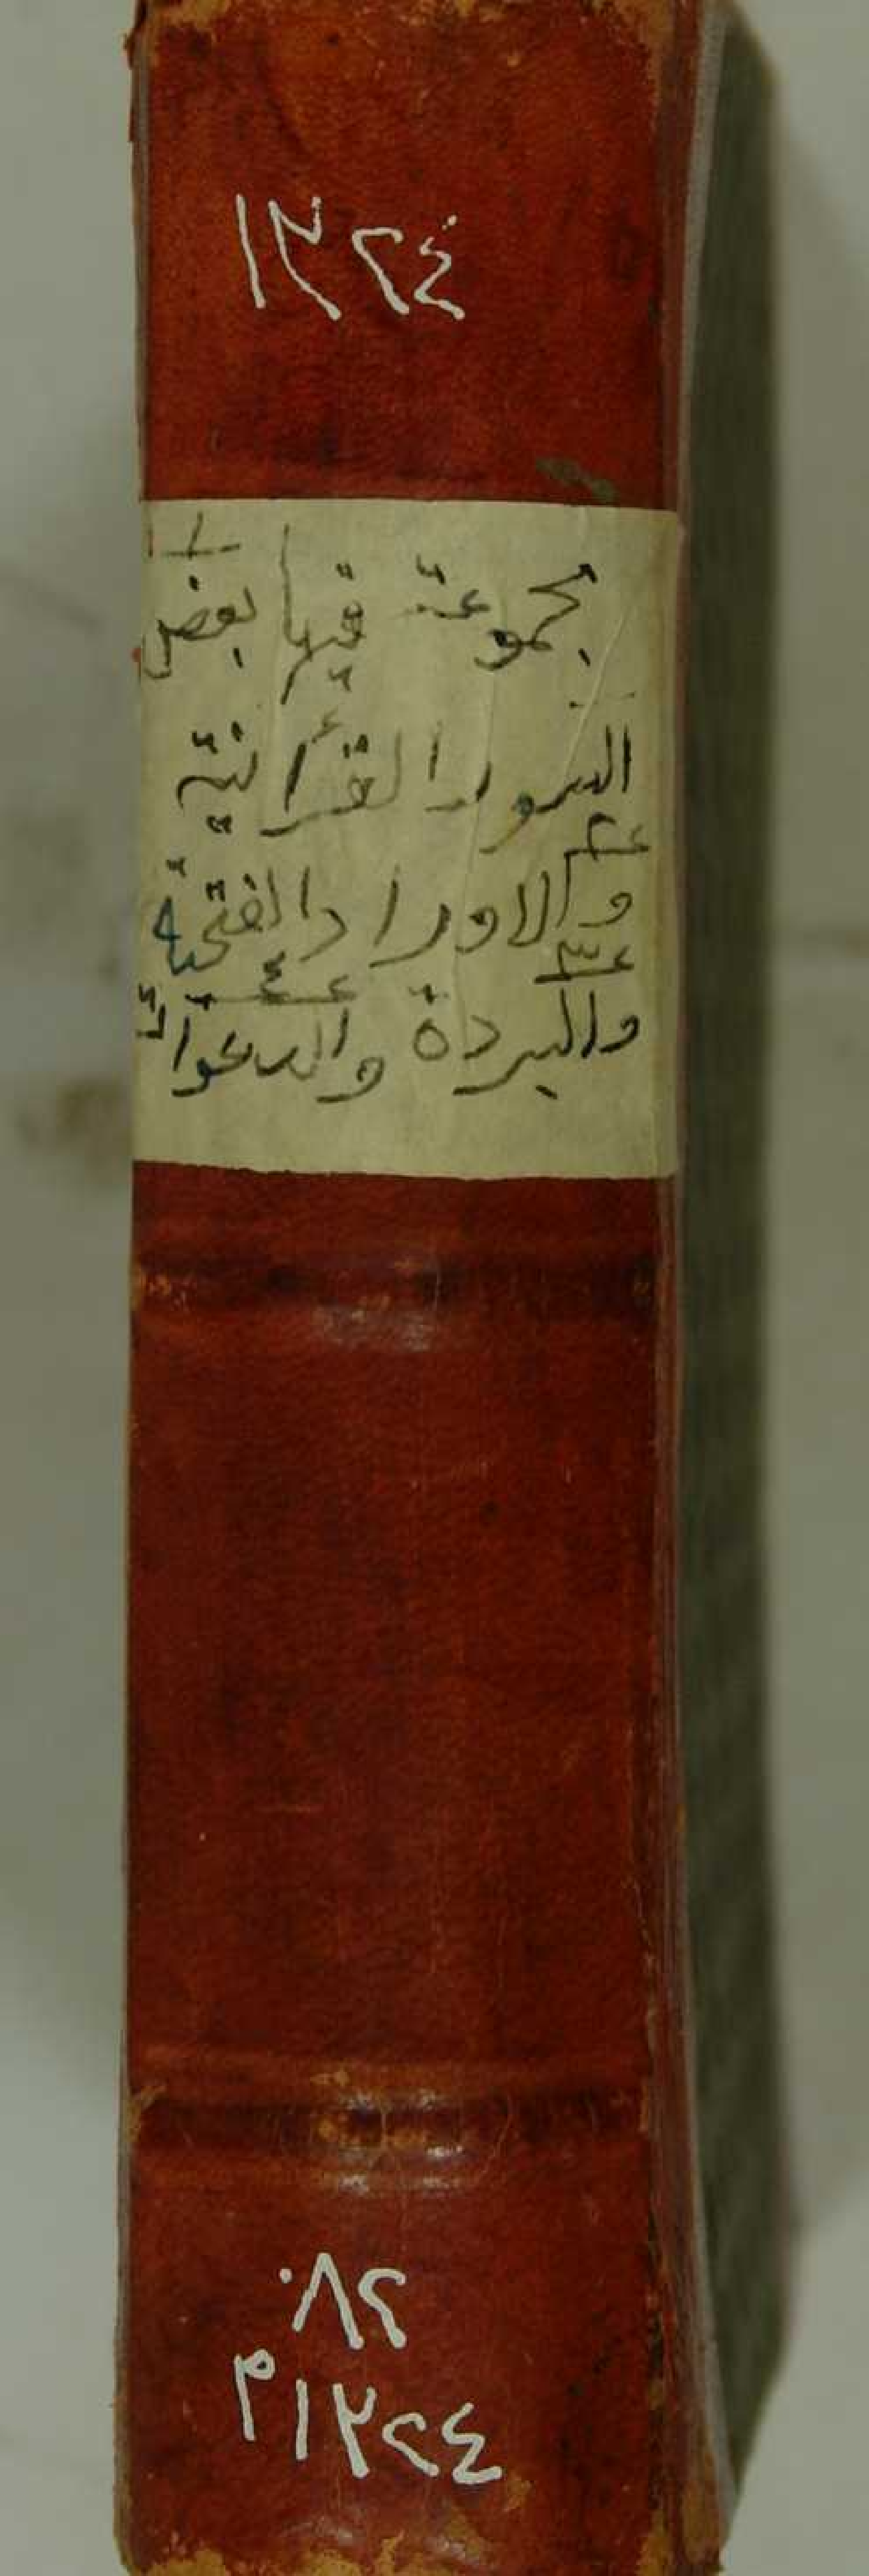 ١٣٢٤
١
مجموعة فيها بعض
السور القرأنية
٢
والاوراد الفتحية
٣ ٤
والبردة والدعوات
٠٨٢
١٣٢٤ م